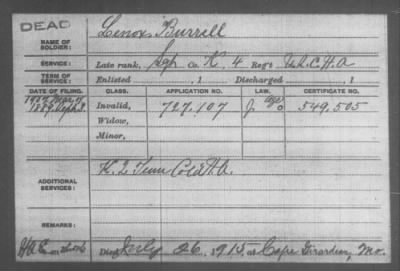 DEAD
NAME OF SOLDIER: Lenox Burrell
SERVICE: Late rank, Sgt Co. K, 4 Reg't U.S.C.H.A
TERM OF SERVICE: Enlisted , 1 Discharged , 1
DATE OF FILING. CLASS. APPLICATION NO. LAW. CERTIFICATE NO.
1907 Mar 11
1889 Sept 3. Invalid, 727.107 549.505
Widow,
Minor,
ADDITIONAL SERVICES: K. 2 Tenn Cold H.A.
REMARKS:
Died July 26, 1915, at Cape Girardeau, Mo.